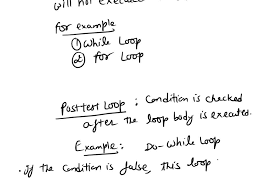 will not execute
for example
① While Loop
② for Loop
Posttest Loop : Condition is checked
after the loop body is executed.
Example: Do-While Loop
. if the condition is false, this loop